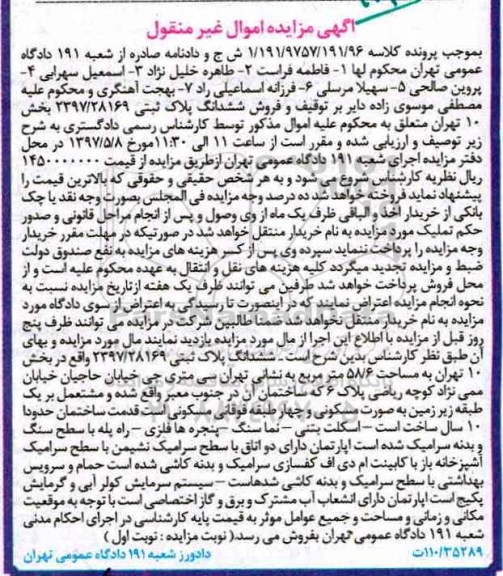 آگهی مزایده اموال غیر منقول
بموجب پرونده کلاسه ۱/۱۹۱/۹۷۵۷/۱۹۱/۹۶ ش ج و دادنامه صادره از شعبه ۱۹۱ دادگاه
عمومی تهران محکوم لها ۱- فاطمه فراست ۲- طاهره خلیل نژاد ۳- اسمعیل سهرابی ۴-
پروین صالحی ۵- سهیلا مرسلی ۶- فرزانه اسماعیلی راد ۷- بهجت آهنگری و محکوم علیه
مصطفی موسوی زاده دایر بر توقیف و فروش ششدانگ پلاک ثبتی ۲۳۹۷/۲۸۱۶۹ بخش
۱۰ تهران متعلق به محکوم علیه اموال مذکور توسط کارشناس رسمی دادگستری به شرح
زیر توصیف و ارزیابی شده و مقرر است از ساعت ۱۱ الی ۱۱:۳۰ مورخ ۱۳۹۷/۵/۸ در محل
دفتر مزایده اجرای شعبه ۱۹۱ دادگاه عمومی تهران ازطریق مزایده از قیمت ۱۴۵۰۰۰۰۰۰۰
ریال نظریه کارشناس شروع می شود و به هر شخص حقیقی و حقوقی که بالاترین قیمت را
پیشنهاد نماید فروخته خواهد شد ده درصد وجه مزایده فی المجلس بصورت وجه نقد یا چک
بانکی از خریدار اخذ و الباقی ظرف یک ماه از وی وصول و پس از انجام مراحل قانونی و صدور
حکم تملیک مورد مزایده به نام خریدار منتقل خواهد شد در صورتیکه در مهلت مقرر خریدار
وجه مزایده را پرداخت ننماید سپرده وی پس از کسر هزینه های مزایده به نفع صندوق دولت
ضبط و مزایده تجدید میگردد کلیه هزینه های نقل و انتقال به عهده محکوم علیه است و از
محل فروش پرداخت خواهد شد طرفین می توانند ظرف یک هفته از تاریخ مزایده نسبت به
نحوه انجام مزایده اعتراض نمایند که در اینصورت تا رسیدگی به اعتراض از سوی دادگاه مورد
مزایده به نام خریدار منتقل نخواهد شد ضمنا طالبین شرکت در مزایده می توانند ظرف پنج
روز قبل از مزایده با اطلاع این اجرا از مال مورد مزایده بازدید نمایند مال مورد مزایده و بهای
آن طبق نظر کارشناس بدین شرح است - ششدانگ پلاک ثبتی ۲۳۹۷/۲۸۱۶۹ واقع در بخش
۱۰ تهران به مساحت ۵۸/۶ متر مربع به نشانی تهران سی متری جی خیابان حاجیان خیابان
ممی نژاد کوچه ریاضی پلاک ۶ که ساختمان آن در جنوب معبر واقع شده و مشتمل بر یک
طبقه زیر زمین به صورت مسکونی و چهار طبقه فوقانی مسکونی است قدمت ساختمان حدودا
۱۰ سال ساخت است – اسکلت بتنی – نما سنگ – پنجره ها فلزی – راه پله با سطح سنگ
و بدنه سرامیک شده است اپارتمان دارای دو اتاق با سطح سرامیک نشیمن با سطح سرامیک
آشپزخانه باز با کابینت ام دی اف کفسازی سرامیک و بدنه کاشی شده است حمام و سرویس
بهداشتی با سطح سرامیک و بدنه کاشی شدهاست – سیستم سرمایش کولر آبی و گرمایش
پکیج است اپارتمان دارای انشعاب آب مشترک و برق و گاز اختصاصی است با توجه به موقعیت
مکانی و زمانی و مساحت و جمیع عوامل موثر به قیمت پایه کارشناسی در اجرای احکام مدنی
شعبه ۱۹۱ دادگاه عمومی تهران بفروش می رسد.( نوبت مزایده : نوبت اول )
۱۱۰/۳۵۲۸۹ت دادورز شعبه ۱۹۱ دادگاه عمومی تهران